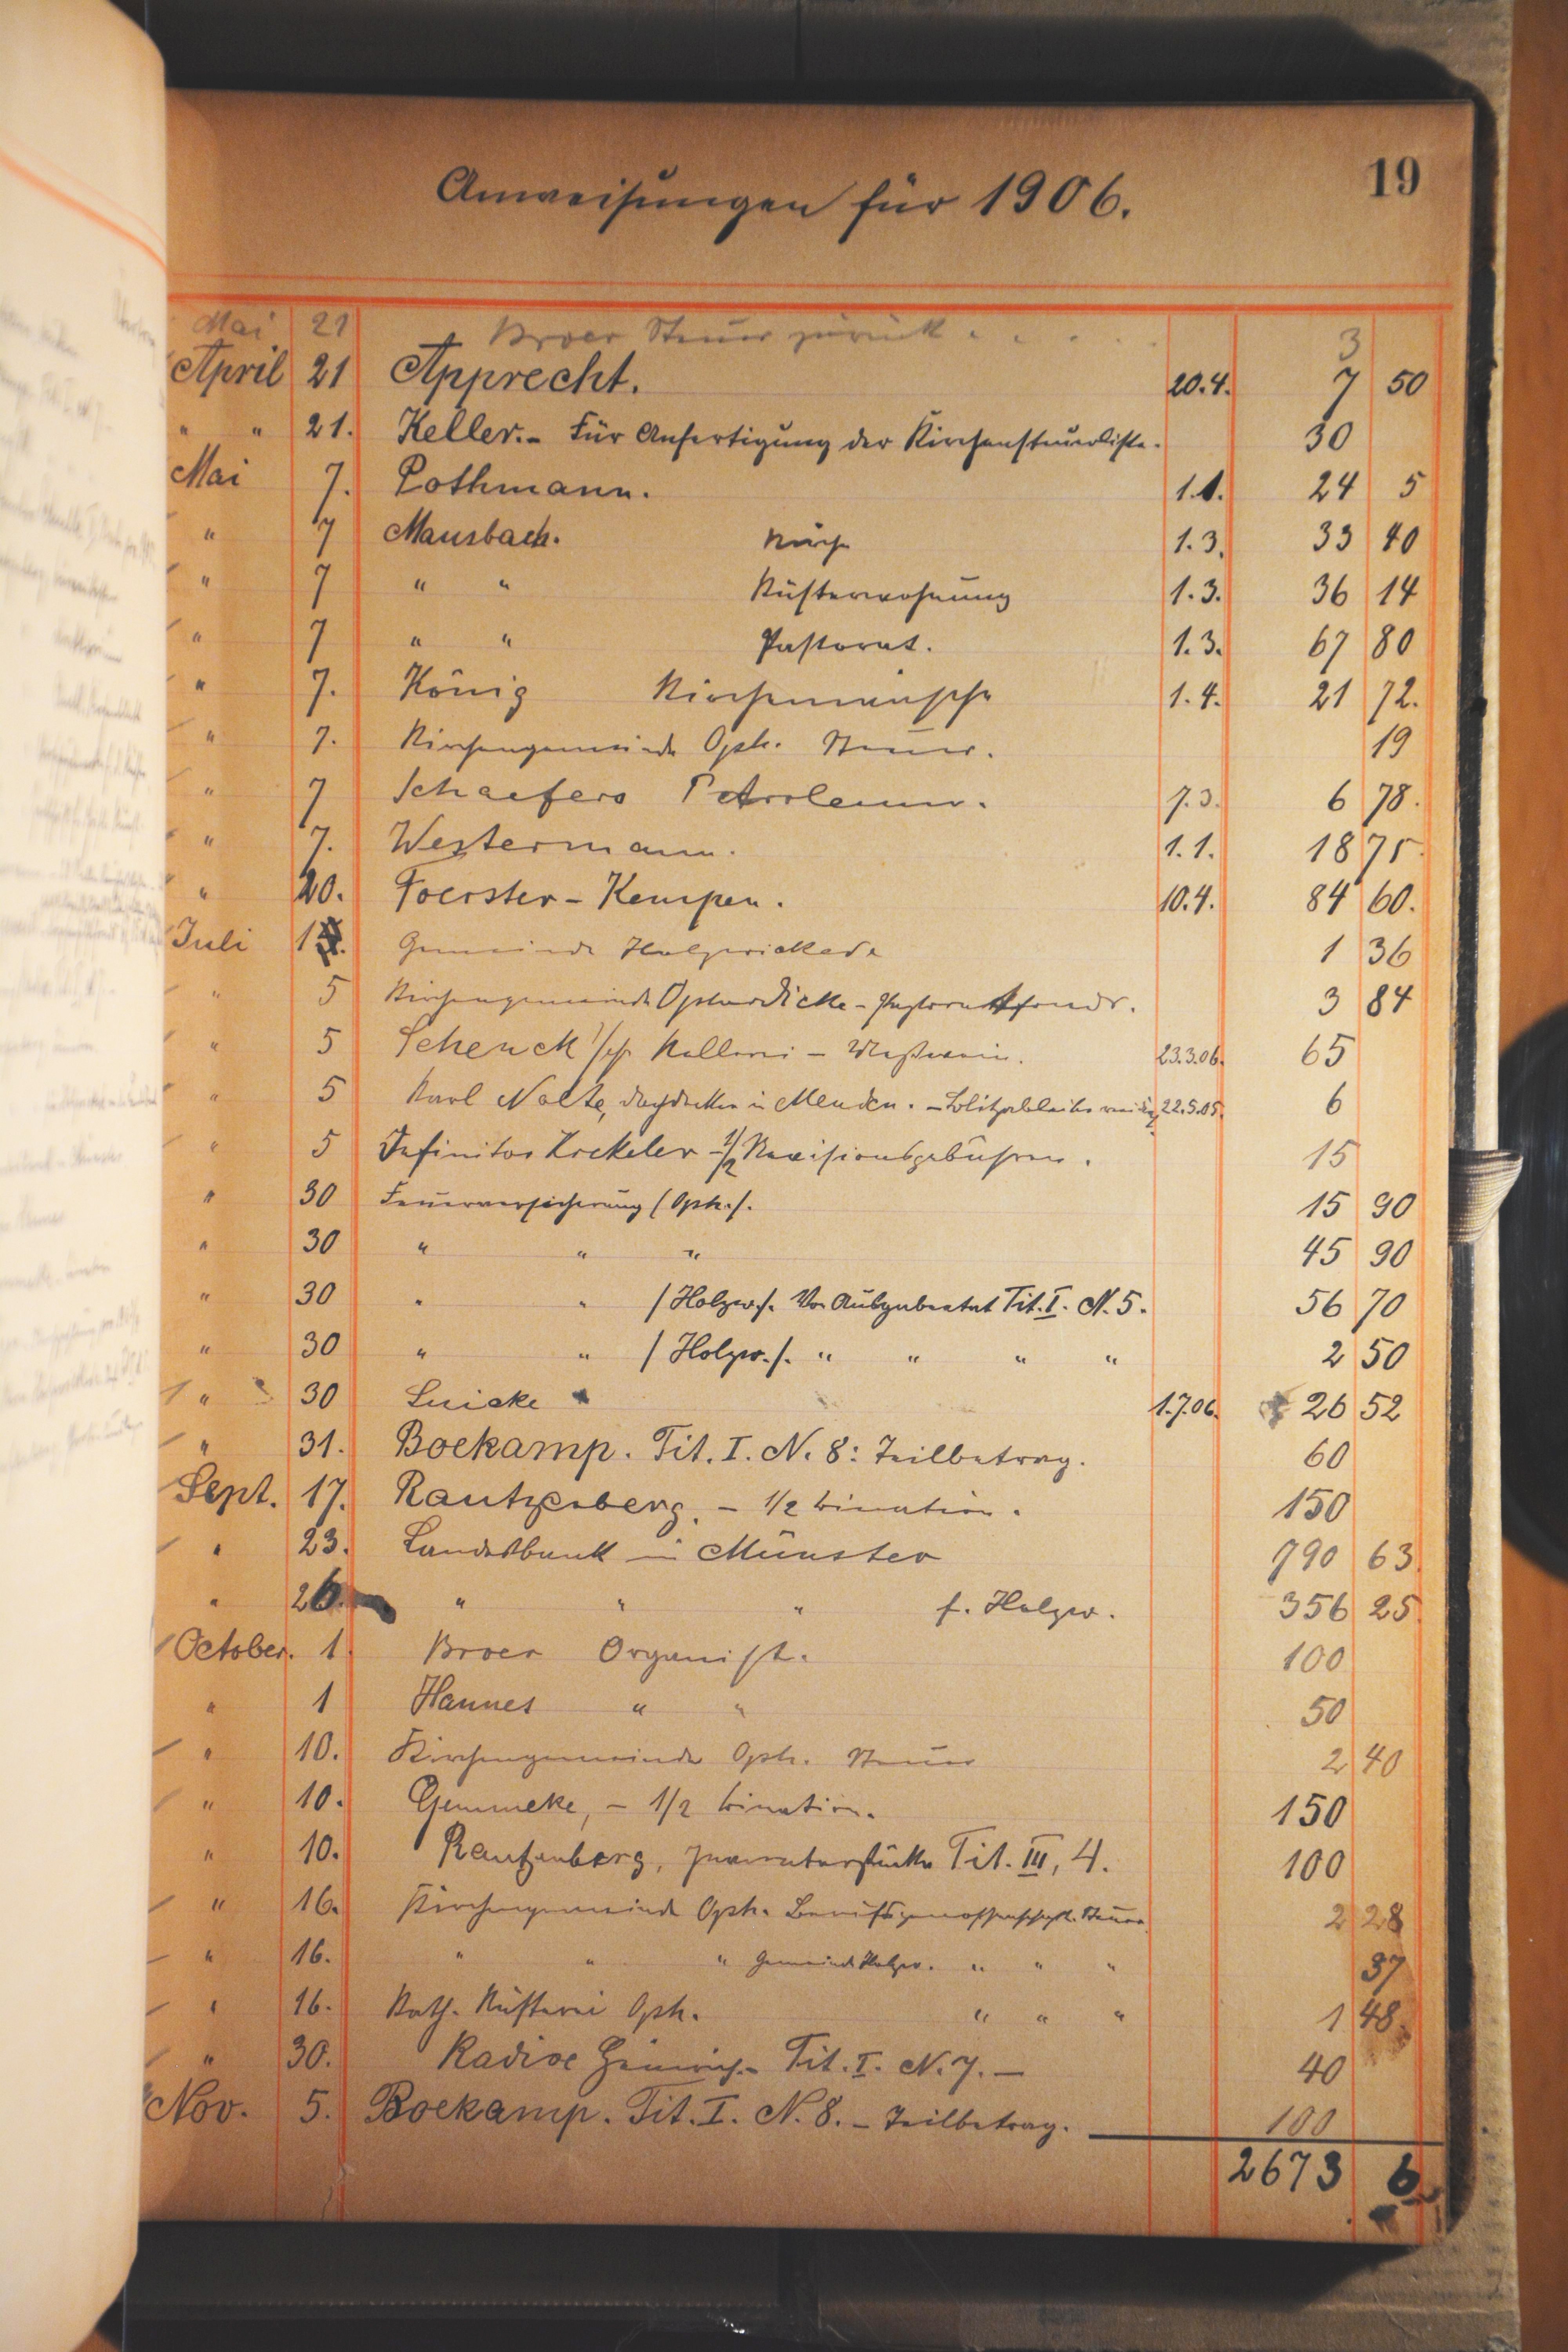 19
Anweisungen für 1906.
Mai 21 Broer Steuer zurück . . . . 3
April 21 Apprecht. 20.4. 7 50
" " 21. Keller.- Für Anfertigung der Kirchensteuerliste. 30
Mai 7. Pothmann. 1.1. 24 5
" 7 Mausbach. Kirche 1.3. 33 40
" 7 " " Küsterwohnung 1.3. 36 14
" 7 " " Pastorat. 1.3. 67 80
" 7. König Kirchenwäsche 1.4. 21 72.
" 7. Kirchengemeinde Oph. Steuer. 19
" 7 Schaefers Petroleum. 7.3. 6 78.
" 7. Westermann. 1.1. 18 75
" 20. Foerster - Kempen. 10.4. 84 60.
Juli Gemeinde Holzwickede 1 36
" 5 Kirchengemeinde Opherdicke - Pastoratfonds. 3 84
" 5 Schenck Kellerei - Meßwein. 23.3.06. 65
" 5 Karl Nolte, Dachdecker in Menden. - 22.5.05. 6
" 5 Definitor - 1/2 Revisionsgebühren. 15
" 30 Feuerversicherung /Oph./. 15 90
" 30 " " " 45 90
" 30 " " /Holzw./. Vor Ausgabeetat Tit. I. N. 5. 56 70
" 30 " " /Holzw./. " " " " 2 50
" 30 Luicke 1.7.06. 26 52
" 31. Boekamp. Tit. I. N. 8: Teilbetrag. 60
Sept. 17. Rautzenberg. - 1/2 Bination. 150
" 23. Landesbank in Münster 790 63
" 26. " " " f. Holzw. 356 25
October. 1 Broer Organist. 100
" 1 Hannes " " 50
" 10. Kirchengemeinde Oph. Steuer 2 40
" 10. Gemmeke, - 1/2 Bination. 150
" 10. Rautzenberg, Inventarstücke Tit. III, 4. 100
" 16. Kirchengemeinde Oph. Berufsgenossenschaftl. Steuer 2 28
" 16. " " " Gemeinde Holzw. " " " 37
" 16. Kath. Küsterei Oph. " " " 1 48
" 30. Radine Heinrich.- Tit. I. N. 7. - 40
Nov. 5. Boekamp. Tit. I. N. 8. - Teilbetrag. 100
2673 6